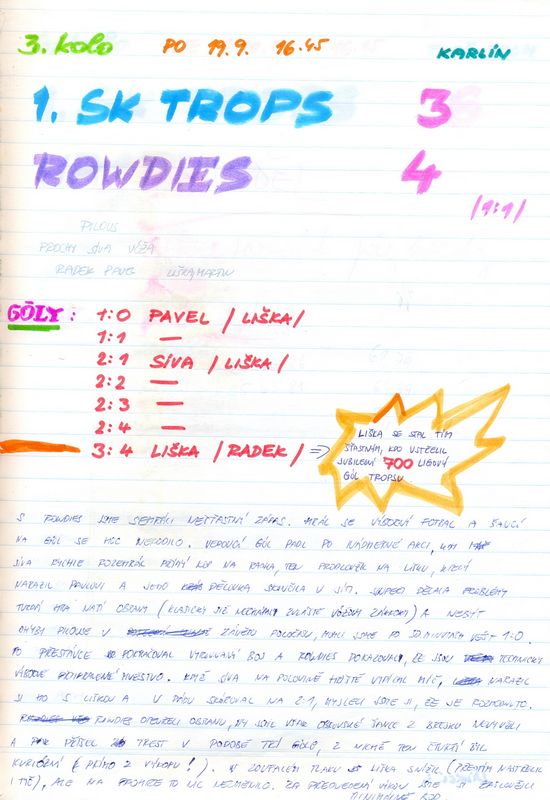 3. kolo PO 19.9. 16.45 KARLÍN
1. SK TROPS 3
ROWDIES 4
/1:1/
PILOUS
PROCHY SÍVA VÓŽA
RADEK PAVEL LIŠKA, MARTIN
GÓLY: 1:0 PAVEL /LIŠKA/
1:1 —
2:1 SÍVA /LIŠKA/
2:2 —
2:3 —
2:4 —
3:4 LIŠKA /RADEK/ =>
LIŠKA SE STAL TÍM
ŠŤASTNÝM, KDO VSTŘELIL
JUBILEJNÍ 700 LIGOVÝ
GÓL TROPSU
S ROWDIES JSME SEHRÁLI NEŠŤASTNÝ ZÁPAS. HRÁL SE FOTBAL A ŠANCÍ
NA GÓL SE MOC NERODILO. VEDOUCÍ GÓL PADL PO NÁDHERNÉ AKCI, KDY
SÍVA RYCHLE ROZEHRÁL PŘÍMÝ KOP NA RADKA, TEN PRODLOUŽIL NA LIŠKU, KTERÝ
NARAZIL PAVLOVI A JEHO DĚLOVKA SKONČILA V SÍTI. SOUPEŘI DĚLALA PROBLÉMY
TVRDÁ HRA NAŠÍ OBRANY (KLASICKY ZVLÁŠTĚ VÓŽOVY ZÁKROKY) A NEBÝT
CHYBY PILOUSE V ZÁVĚRU POLOČASU, MOHLI JSME PO 30 MINUTÁCH VÉST 1:0.
PO PŘESTÁVCE POKRAČOVAL VYROVNANÝ BOJ A ROWDIES DOKAZOVALI, ŽE JSOU TECHNICKY
VÝBORNĚ MUŽSTVO. KDYŽ SÍVA NA POLOVINĚ HŘIŠTĚ VYPÍCHL MÍČ, NARAZIL
SI HO S LIŠKOU A V PÁDU SKÓROVAL NA 2:1, MYSLELI JSME SI, ŽE JE ROZHODNUTO.
ROWDIES OTEVŘELI OBRANU, MY JSME ŠANCE Z BREJKU NEVYUŽILI
A PŘIŠEL TREST V PODOBĚ TŘÍ GÓLŮ, Z NICHŽ TEN ČTVRTÝ BYL
KURIÓZNÍ (PŘÍMO Z VÝKOPU!). V ZOUFALÉM TLAKU LIŠKA SNÍŽIL (PŘEDTÍM NASTŘELIL
I TYČ), ALE NA PROHŘE TO NIC NEZMĚNILO. ZA PŘEDVEDENÝ VÝKON JSME SI ZASLOUŽILI
MINIMÁLNĚ BOD.